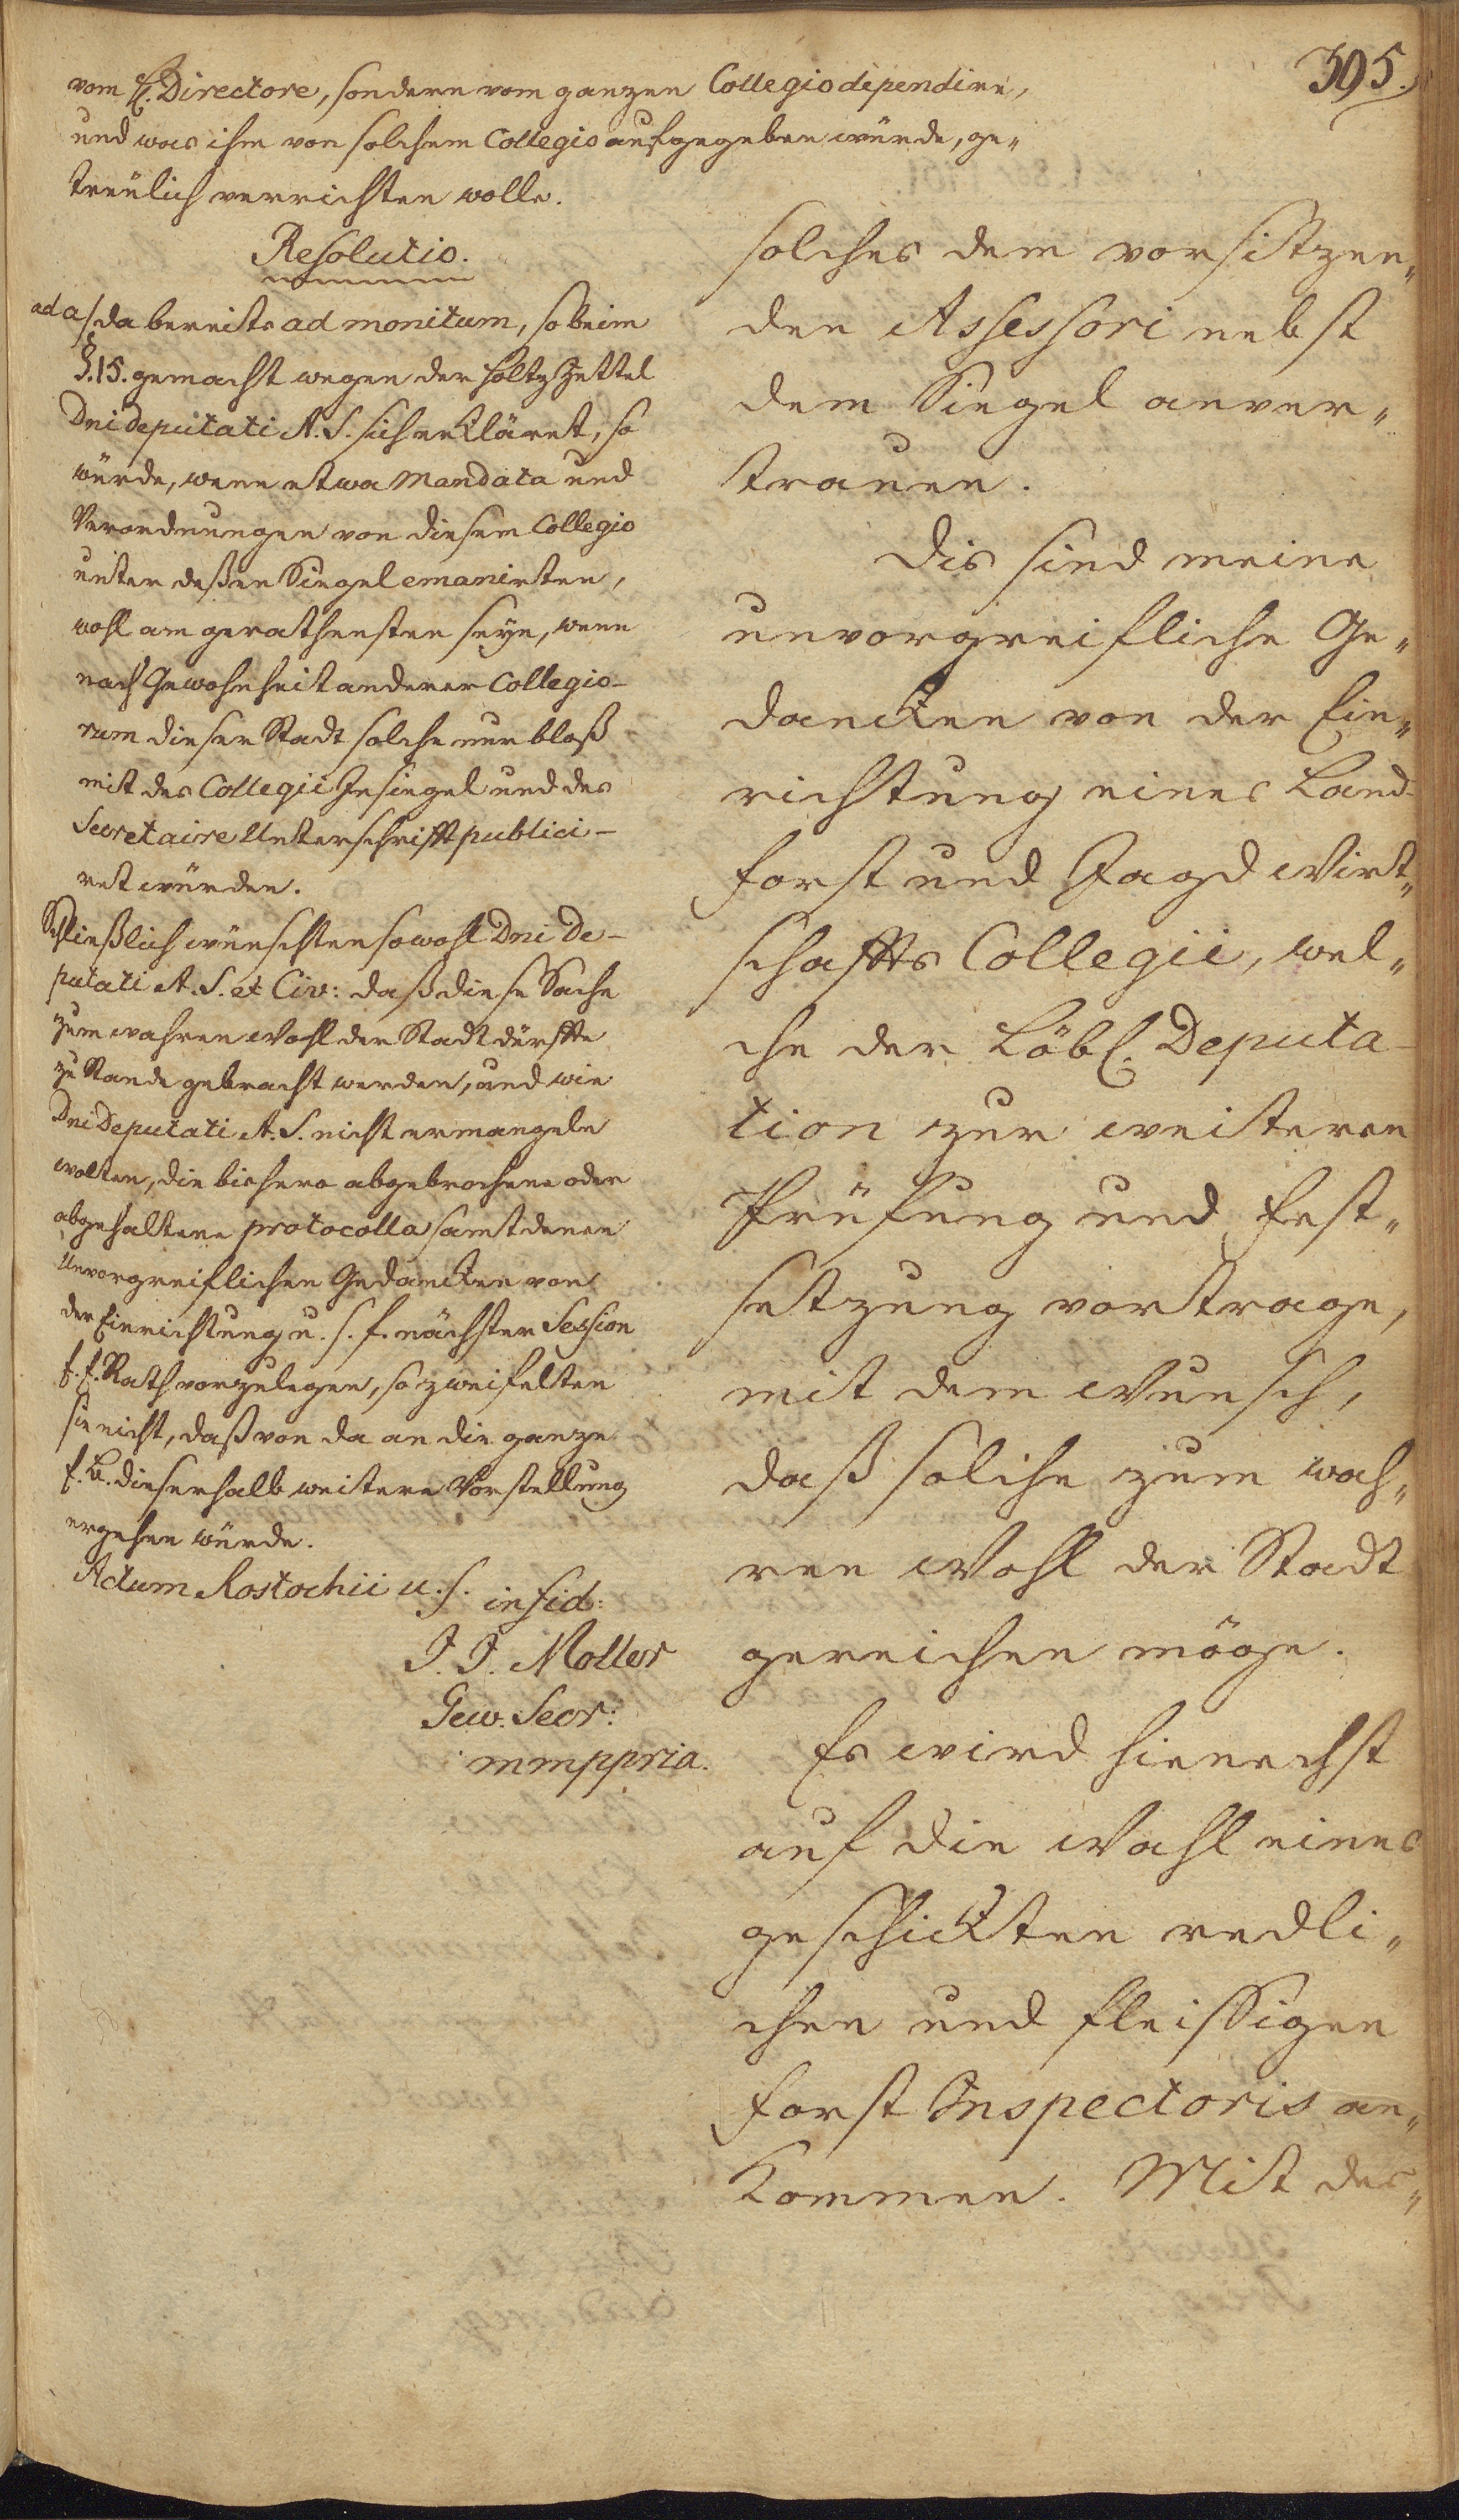 395.
vom H. Directore, sondern vom ganzen Collegio dependire,
und was ihm von solchem Collegio aufgegeben würde, ge„
treulich verrichten wolle.
Resolutio.
ad a/ da bereits ad monitum, so beim
§. 15. gemacht wegen der Holtz Zettel
Dni deputati A. S. sich erkläret, so
würde, wenn etwa Mandata und
Verordnungen von diesem Collegio
unter deßen Siegel emanirten,
wohl am gerathensten seyn, wenn
nach Gewohnheit anderer Collegio-
rum dieser Stadt solche nur bloß
mit des Collegii Insiegel und des
Secretaire Unterschrifft publici-
ret würden.
Schließlich wünschten sowohl Dni De-
putati A. S. et Civ: daß diese Sache
zum wahren Wohl der Stadt dürffte
zu Stande gebracht werden, und wie
Dni Deputati A. S. nicht ermangeln
wolten, die bishero abgebrochene oder
abgehaltene protocolla samt denen
Unvorgreiflichen Gedancken von
der Einrichtung u. s. f. nächster Session
E. E. Rath vorzulegen, so zweifelten
sie nicht, daß von da an die ganze
E. B. dieserhalb weitere Vorstellung
ergehen würde.
Actum Rostochii u. s. in fid:
J. J. Moller
Gew. Secr:
mmppria.
solches dem vorsitzen„
den Assessori nebst
dem Siegel anver„
trauen.
Dis sind meine
unvorgreifliche Ge„
dancken von der Ein„
richtung eines Land-
Forst und Jagd Wirt„
schaffts Collegii, wel„
che der Löbl. Deputa-
tion zur weiteren
Prüfung und Fest„
setzung vortrage,
mit dem Wunsch,
daß solche zum wah„
ren Wohl der Stadt
gereichen möge.
Es wird hienechst
auf die Wahl eines
geschickten redli„
chen und fleissigen
Forst Inspectoris an„
kommen. Mit des„